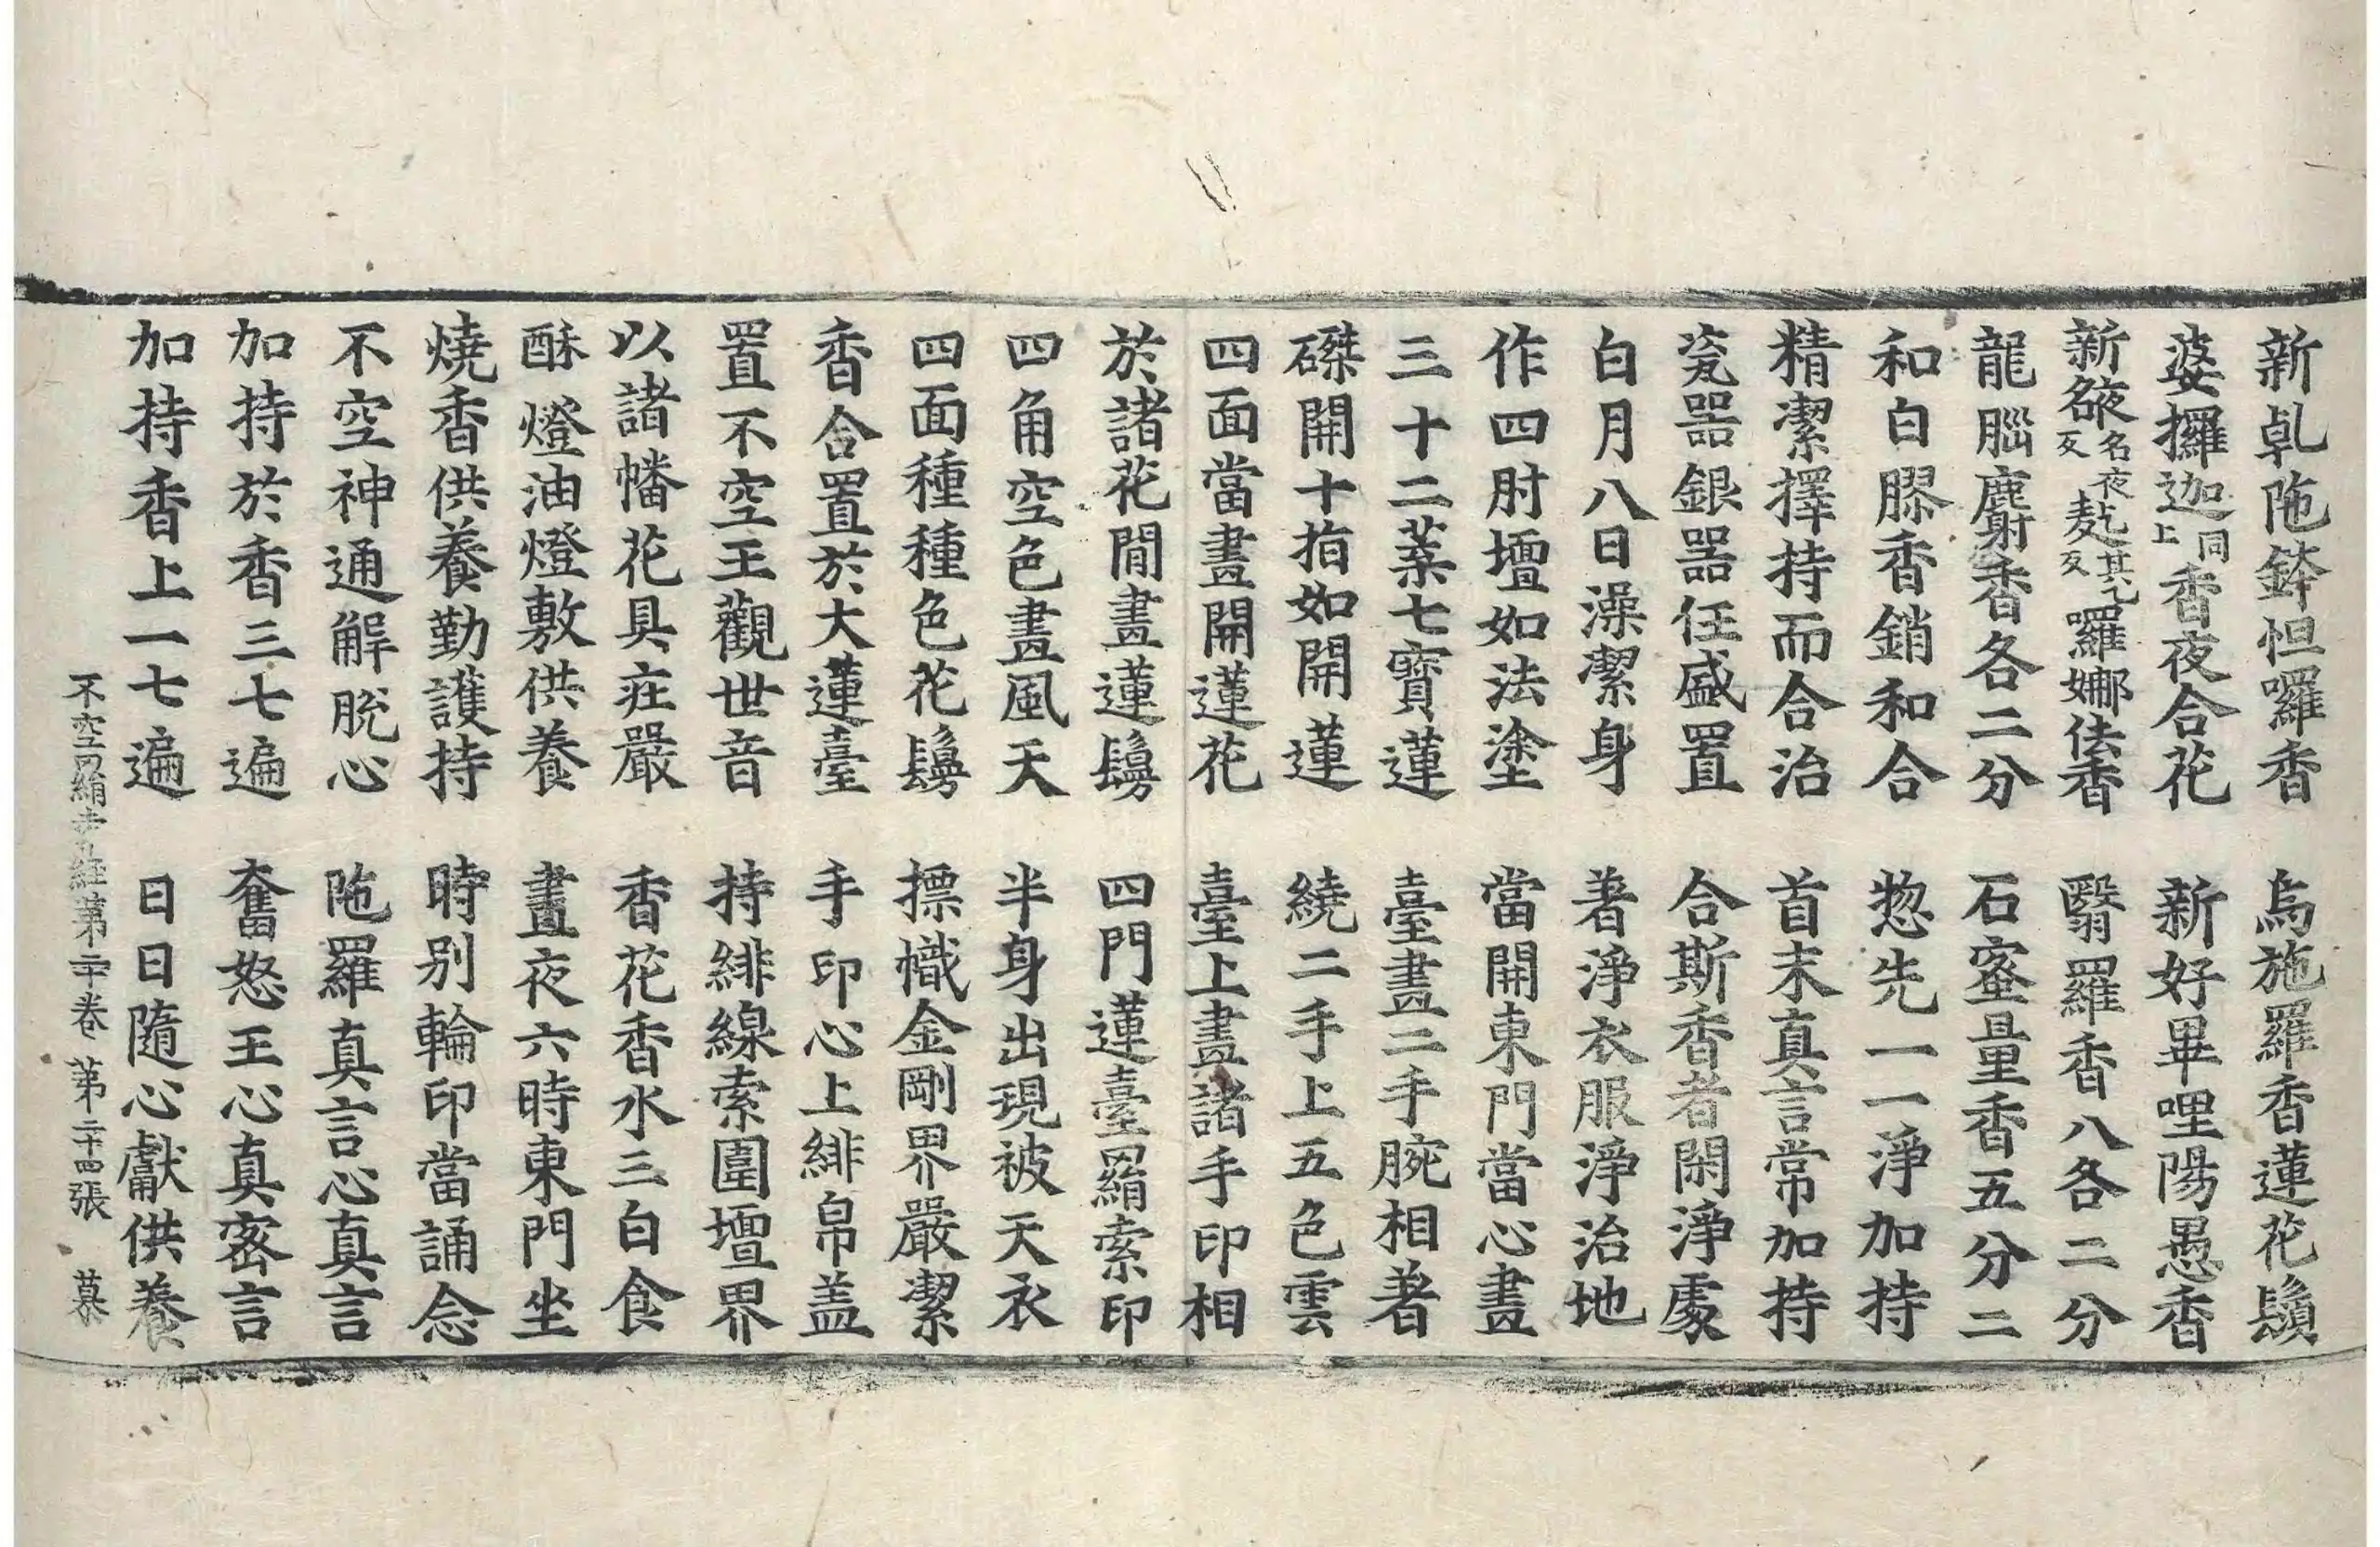 新乹陁鉢怛囉香　烏施羅香蓮花鬚
婆攞迦同上香夜合花　新好畢哩陽愚香
新㚙名夜反麧其乞反囉娜佉香　翳羅香八各二分
龍腦麝香各二分　石蜜量香五分二
和白膠香銷和合　惣先一一淨加持
精潔擇持而合治　首末真言常加持
瓷器銀器任盛置　合斯香者閑淨處
白月八日澡潔身　著淨衣服淨治地
作四肘壇如法塗　當開東門當心畫
三十二葉七寶蓮　臺畫二手腕相著
磔開十指如開蓮　繞二手上五色雲
四面當畫開蓮花　臺上畫諸手印相
於諸花閒畫蓮鬘　四門蓮臺羂索印
四角空色畫風天　半身出現被天衣
四面種種色花鬘　摽幟金剛界嚴潔
香合置於大蓮臺　手印心上緋帛盖
置不空王觀世音　持緋線索圍壇界
以諸幡花具莊嚴　香花香水三白食
酥燈油燈敷供養　晝夜六時東門坐
燒香供養勤護持　時別輪印當誦念
不空神通解脫心　陁羅真言心真言
加持於香三七遍　奮怒王心真密言
加持香上一七遍　日日隨心獻供養
不空羂索經第二十卷　第二十四張　慕